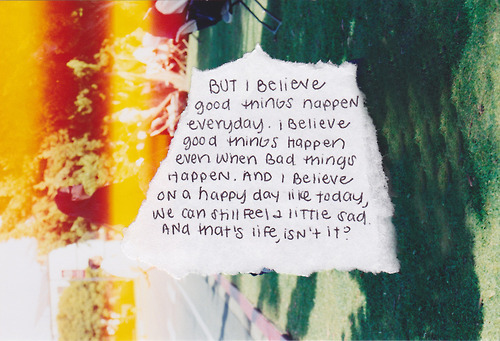 BUT i Believe
good things happen
everyday. i Believe
good things Happen
even when Bad things
Happen. AND i Believe
on a happy day like today,
we can still feel a little sad.
AND that's life, isn't it?